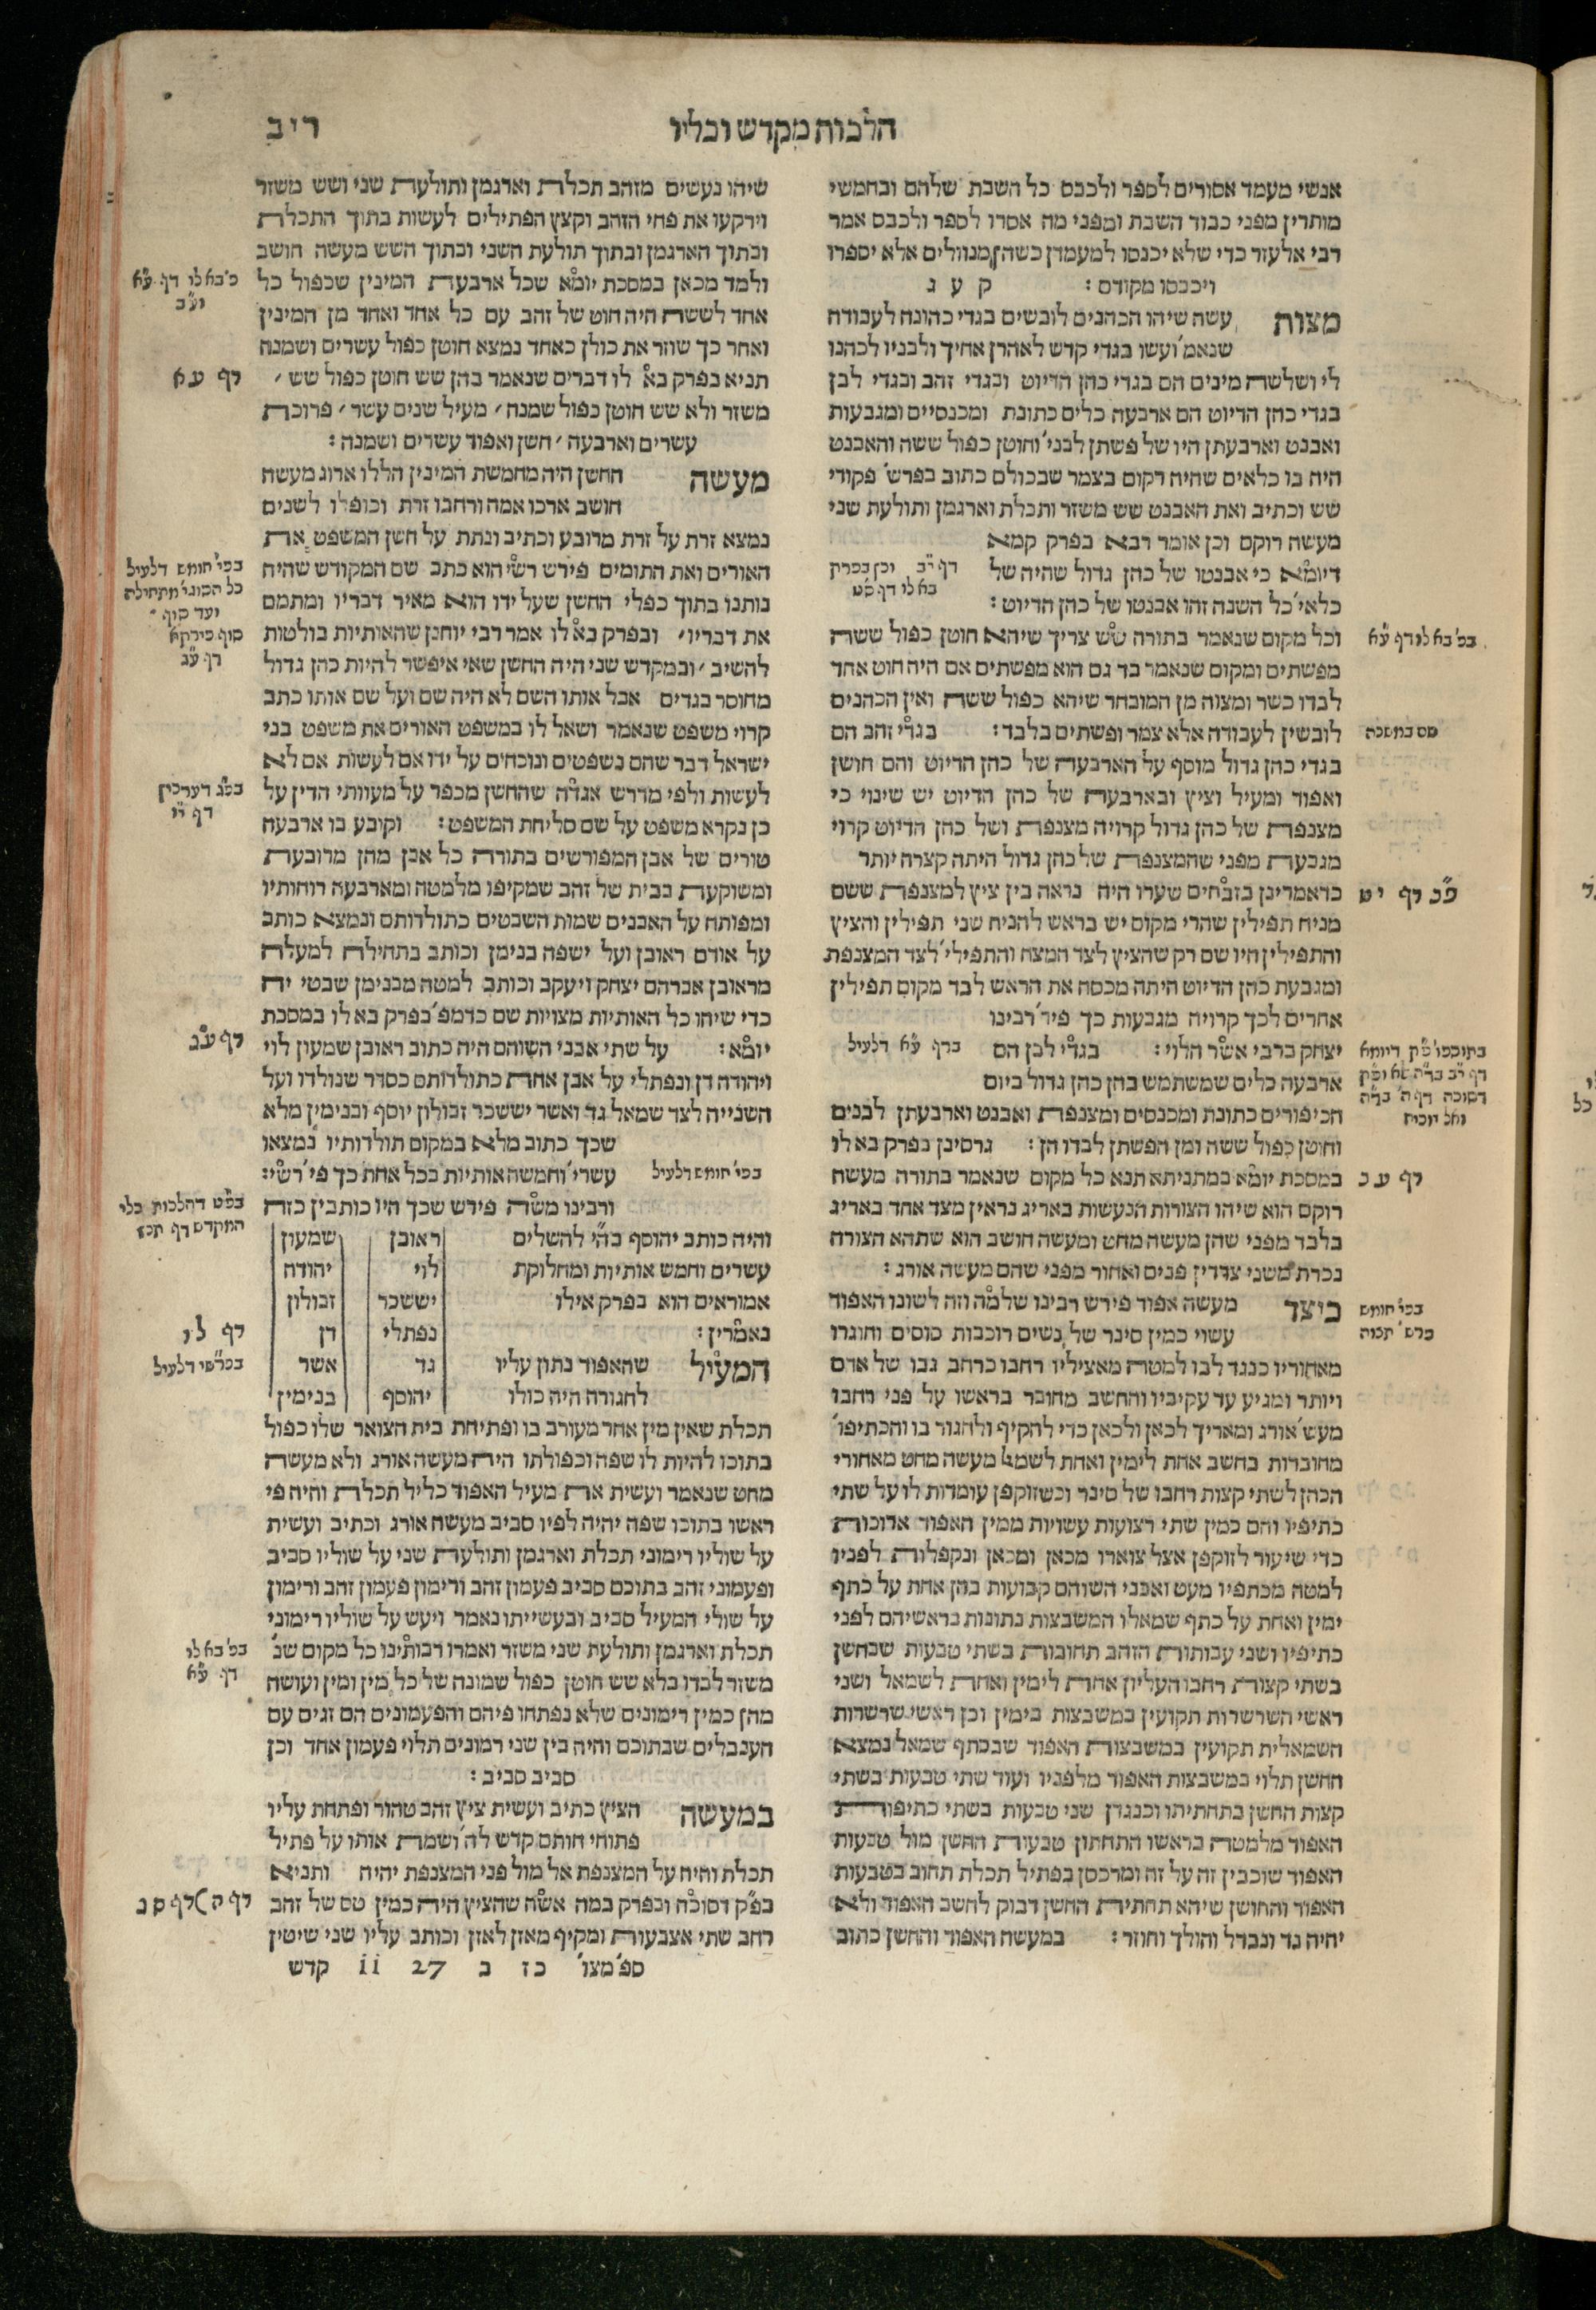 הלכות מקדש וכליו
ריב
אנשי מעמד אסורים לספר ולכבס כל השבת שלהם ובחמשי
מותרין מפני כבוד השבת ומפני מה אסרו לספר ולכבס אמר
רבי אלעזר כדי שלא יכנסו למעמדן כשהן מנוולים אלא יספרו
ויכבסו מקודם : ק ע ג
מצות עשה שיהו הכהנים לובשים בגדי כהונה לעבודה
שנאמ' ועשו בגדי קדש לאהרן אחיך ולבניו לכהנו
לי ושלשה מינים הם בגדי כהן הדיוט ובגדי זהב ובגדי לבן
בגדי כהן הדיוט הם ארבעה כלים כתונת ומכנסיים ומגבעות
ואבנט וארבעתן היו של פשתן לבני' וחוטן כפול ששה והאבנט
היה בו כלאים שהיה רקום בצמר שבכולם כתוב בפרש' פקודי
שש וכתיב ואת האבנט שש משזר ותכלת וארגמן ותולעת שני
מעשה רוקם וכן אומר רבא בפרק קמא
דיומא כי אבנטו של כהן גדול שהיה של
דף י"ב וכן בפרק
בא לו דף ס"ט
כלאי' כל השנה זהו אבנטו של כהן הדיוט :
וכל מקום שנאמר בתורה שש צריך שיהא חוטן כפול ששה
בפ' בא לו דף ע"א
מפשתים ומקום שנאמר בד גם הוא מפשתים אם היה חוט אחד
לבדו כשר ומצוה מן המובחר שיהא כפול ששה ואין הכהנים
לובשין לעבודה אלא צמר ופשתים בלבד : בגדי זהב הם
בגדי כהן גדול מוסף על הארבעה של כהן הדיוט והם חושן
ואפוד ומעיל וציץ ובארבעה של כהן הדיוט יש שינוי כי
מצנפת של כהן גדול קרויה מצנפת ושל כהן הדיוט קרוי
מגבעת מפני שהמצנפת של כהן גדול היתה קצרה יותר
כדאמרינן בזבחים שערו היה נראה בין ציץ למצנפת ששם
פ"ב דף יט
מניח תפילין שהרי מקום יש בראש להניח שני תפילין והציץ
והתפילין היו שם רק שהציץ לצד המצח והתפילי' לצד המצנפת
ומגבעת כהן הדיוט היתה מכסה את הראש לבד מקום תפילין
אחרים לכך קרויה מגבעות כך פיר' רבינו
יצחק ברבי אשר הלוי : בגדי לבן הם
בדף ע"א דלעיל
ארבעה כלים שמשתמש בהן כהן גדול ביום
הכיפורים כתונת ומכנסים ומצנפת ואבנט וארבעתן לבנים
וחוטן כפול ששה ומן הפשתן לבדו הן : גרסינן בפרק בא לו
במסכת יומא במתניתא תנא כל מקום שנאמר בתורה מעשה
דף ע ב
רוקם הוא שיהו הצורות הנעשות באריג נראין מצד אחד באריג
בלבד מפני שהן מעשה מחט ומעשה חושב הוא שתהא הצורה
נכרת משני צדדין פנים ואחור מפני שהם מעשה אורג :
כיצד מעשה אפוד פירש רבינו שלמה וזה לשונו האפוד
עשוי כמין סינר של נשים רוכבות סוסים וחוגרו
מאחוריו כנגד לבו למטה מאציליו רחבו כרחב גבו של אדם
ויותר ומגיע עד עקיביו והחשב מחובר בראשו על פני רחבו
מעש' אורג ומאריך לכאן ולכאן כדי להקיף ולחגור בו והכתיפו'
מחוברות בחשב אחת לימין ואחת לשמאל מעשה מחט מאחורי
הכהן לשתי קצות רחבו של סינר וכשזוקפן עומדות לו על שתי
כתיפיו והם כמין שתי רצועות עשויות ממין האפוד ארוכות
כדי שיעור לזוקפן אצל צוארו מכאן ומכאן ונקפלות לפניו
למטה מכתפיו מעט ואבני השוהם קבועות בהן אחת על כתף
ימין ואחת על כתף שמאלו המשבצות נתונות בראשיהם לפני
כתיפיו ושני עבותות הזהב תחובות בשתי טבעות שבחשן
בשתי קצות רחבו העליון אחת לימין ואחת לשמאל ושני
ראשי השרשרות תקועין במשבצות בימין וכן ראשי שרשרות
השמאלית תקועין במשבצות האפוד שבכתף שמאל נמצא
החשן תלוי במשבצות האפוד מלפניו ועוד שתי טבעות בשתי
קצות החשן בתחתיתו וכנגדן שני טבעות בשתי כתיפות
האפוד מלמטה בראשו התחתון טבעות החשן מול טבעות
האפוד שוכבין זה על זה ומרכסן בפתיל תכלת תחוב בטבעות
האפוד והחושן שיהא תחתית החשן דבוק לחשב האפוד ולא
יהיה נד ונבדל והולך וחוזר : במעשה האפוד והחשן כתוב
שיהו נעשים מזהב תכלת וארגמן ותולעת שני ושש משזר
וירקעו את פחי הזהב וקצץ הפתילים לעשות בתוך התכלת
ובתוך הארגמן ובתוך תולעת השני ובתוך השש מעשה חושב
ולמד מכאן במסכת יומא שכל ארבעת המינין שכפול כל
פ' בא לו דף ע"א
וע"ב
אחד לששה היה חוט של זהב עם כל אחד ואחד מן המינין
ואחר כך שוזר את כולן כאחד נמצא חוטן כפול עשרים ושמנה
תניא בפרק בא לו דברים שנאמר בהן שש חוטן כפול שש ,
דף ע א
משזר ולא שש חוטן כפול שמנה , מעיל שנים עשר , פרוכת
עשרים וארבעה , חשן ואפוד עשרים ושמנה :
מעשה החשן היה מחמשת המינין הללו ארוג מעשה
חושב ארכו אמה ורחבו זרת וכופלו לשנים
נמצא זרת על זרת מרובע וכתיב ונתת על חשן המשפט את
האורים ואת התומים פירש רש"י הוא כתב שם המקודש שהיה
נותנו בתוך כפלי החשן שעל ידו הוא מאיר דבריו ומתמם
את דבריו , ובפרק בא לו אמר רבי יוחנן שהאותיות בולטות
להשיב , ובמקדש שני היה החשן שאי איפשר להיות כהן גדול
דף ע"ג
מחוסר בגדים אבל אותו השם לא היה שם ועל שם אותו כתב
קרוי משפט שנאמר ושאל לו במשפט האורים את משפט בני
ישראל דבר שהם נשפטים ונוכחים על ידו אם לעשות אם לא
לעשות ולפי מדרש אגדה שהחשן מכפר על מעוותי הדין על
כן נקרא משפט על שם סליחת המשפט : וקובע בו ארבעה
טורים של אבן המפורשים בתורה כל אבן מהן מרובעת
ומשוקעת בבית של זהב שמקיפו מלמטה ומארבעה רוחותיו
ומפותח על האבנים שמות השבטים כתולדותם ונמצא כותב
על אודם ראובן ועל ישפה בנימן וכותב בתחילה למעלה
מראובן אברהם יצחק ויעקב וכותב למטה מבנימן שבטי יה
כדי שיהו כל האותיות מצויות שם כדמפ' בפרק בא לו במסכת
יומא : על שתי אבני השוהם היה כתוב ראובן שמעון לוי
דף ע"ג
ויהודה דן ונפתלי על אבן אחת כתולדותם כסדר שנולדו ועל
השנייה לצד שמאל גד ואשר יששכר זבולון יוסף ובנימין מלא
שכך כתוב מלא במקום תולדותיו נמצאו
עשרי' וחמשה אותיות בכל אחת כך פי' רש"י :
בפי' חומש דלעיל
ורבינו משה פירש שכך היו כותבין כזה
והיה כותב יהוסף בה"י להשלים
עשרים וחמש אותיות ומחלוקת
אמוראים הוא בפרק אילו
נאמרין :
דף לו
ראובן שמעון
לוי יהודה
יששכר זבולון
נפתלי דן
גד אשר
יהוסף בנימין
המעיל שהאפוד נתון עליו
לחגורה היה כולו
תכלת שאין מין אחר מעורב בו ופתיחת בית הצואר שלו כפול
בתוכו להיות לו שפה וכפולתו היה מעשה אורג ולא מעשה
מחט שנאמר ועשית את מעיל האפוד כליל תכלת והיה פי
ראשו בתוכו שפה יהיה לפיו סביב מעשה אורג וכתיב ועשית
על שוליו רימוני תכלת וארגמן ותולעת שני על שוליו סביב
ופעמוני זהב בתוכם סביב פעמון זהב ורימון פעמון זהב ורימון
על שולי המעיל סביב ובעשייתו נאמר ויעש על שוליו רימוני
תכלת וארגמן ותולעת שני משזר ואמרו רבותינו כל מקום שנ'
בפ' בא לו
דף ע"א
משזר לבדו בלא שש חוטן כפול שמונה של כל מין ומין ועושה
מהן כמין רימונים שלא נפתחו פיהם והפעמונים הם זגים עם
הענבלים שבתוכם והיה בין שני רמונים תלוי פעמון אחד וכן
סביב סביב :
במעשה הציץ כתיב ועשית ציץ זהב טהור ופתחת עליו
פתוחי חותם קדש לה' ושמת אותו על פתיל
תכלת והיה על המצנפת אל מול פני המצנפת יהיה ותניא
בפ"ק דסוכה ובפרק במה אשה שהציץ היה כמין טס של זהב
דף ה) דף סג
רחב שתי אצבעות ומקיף מאזן לאזן וכותב עליו שני שיטין
ספ' מצו' כז ב 27 ii קדש